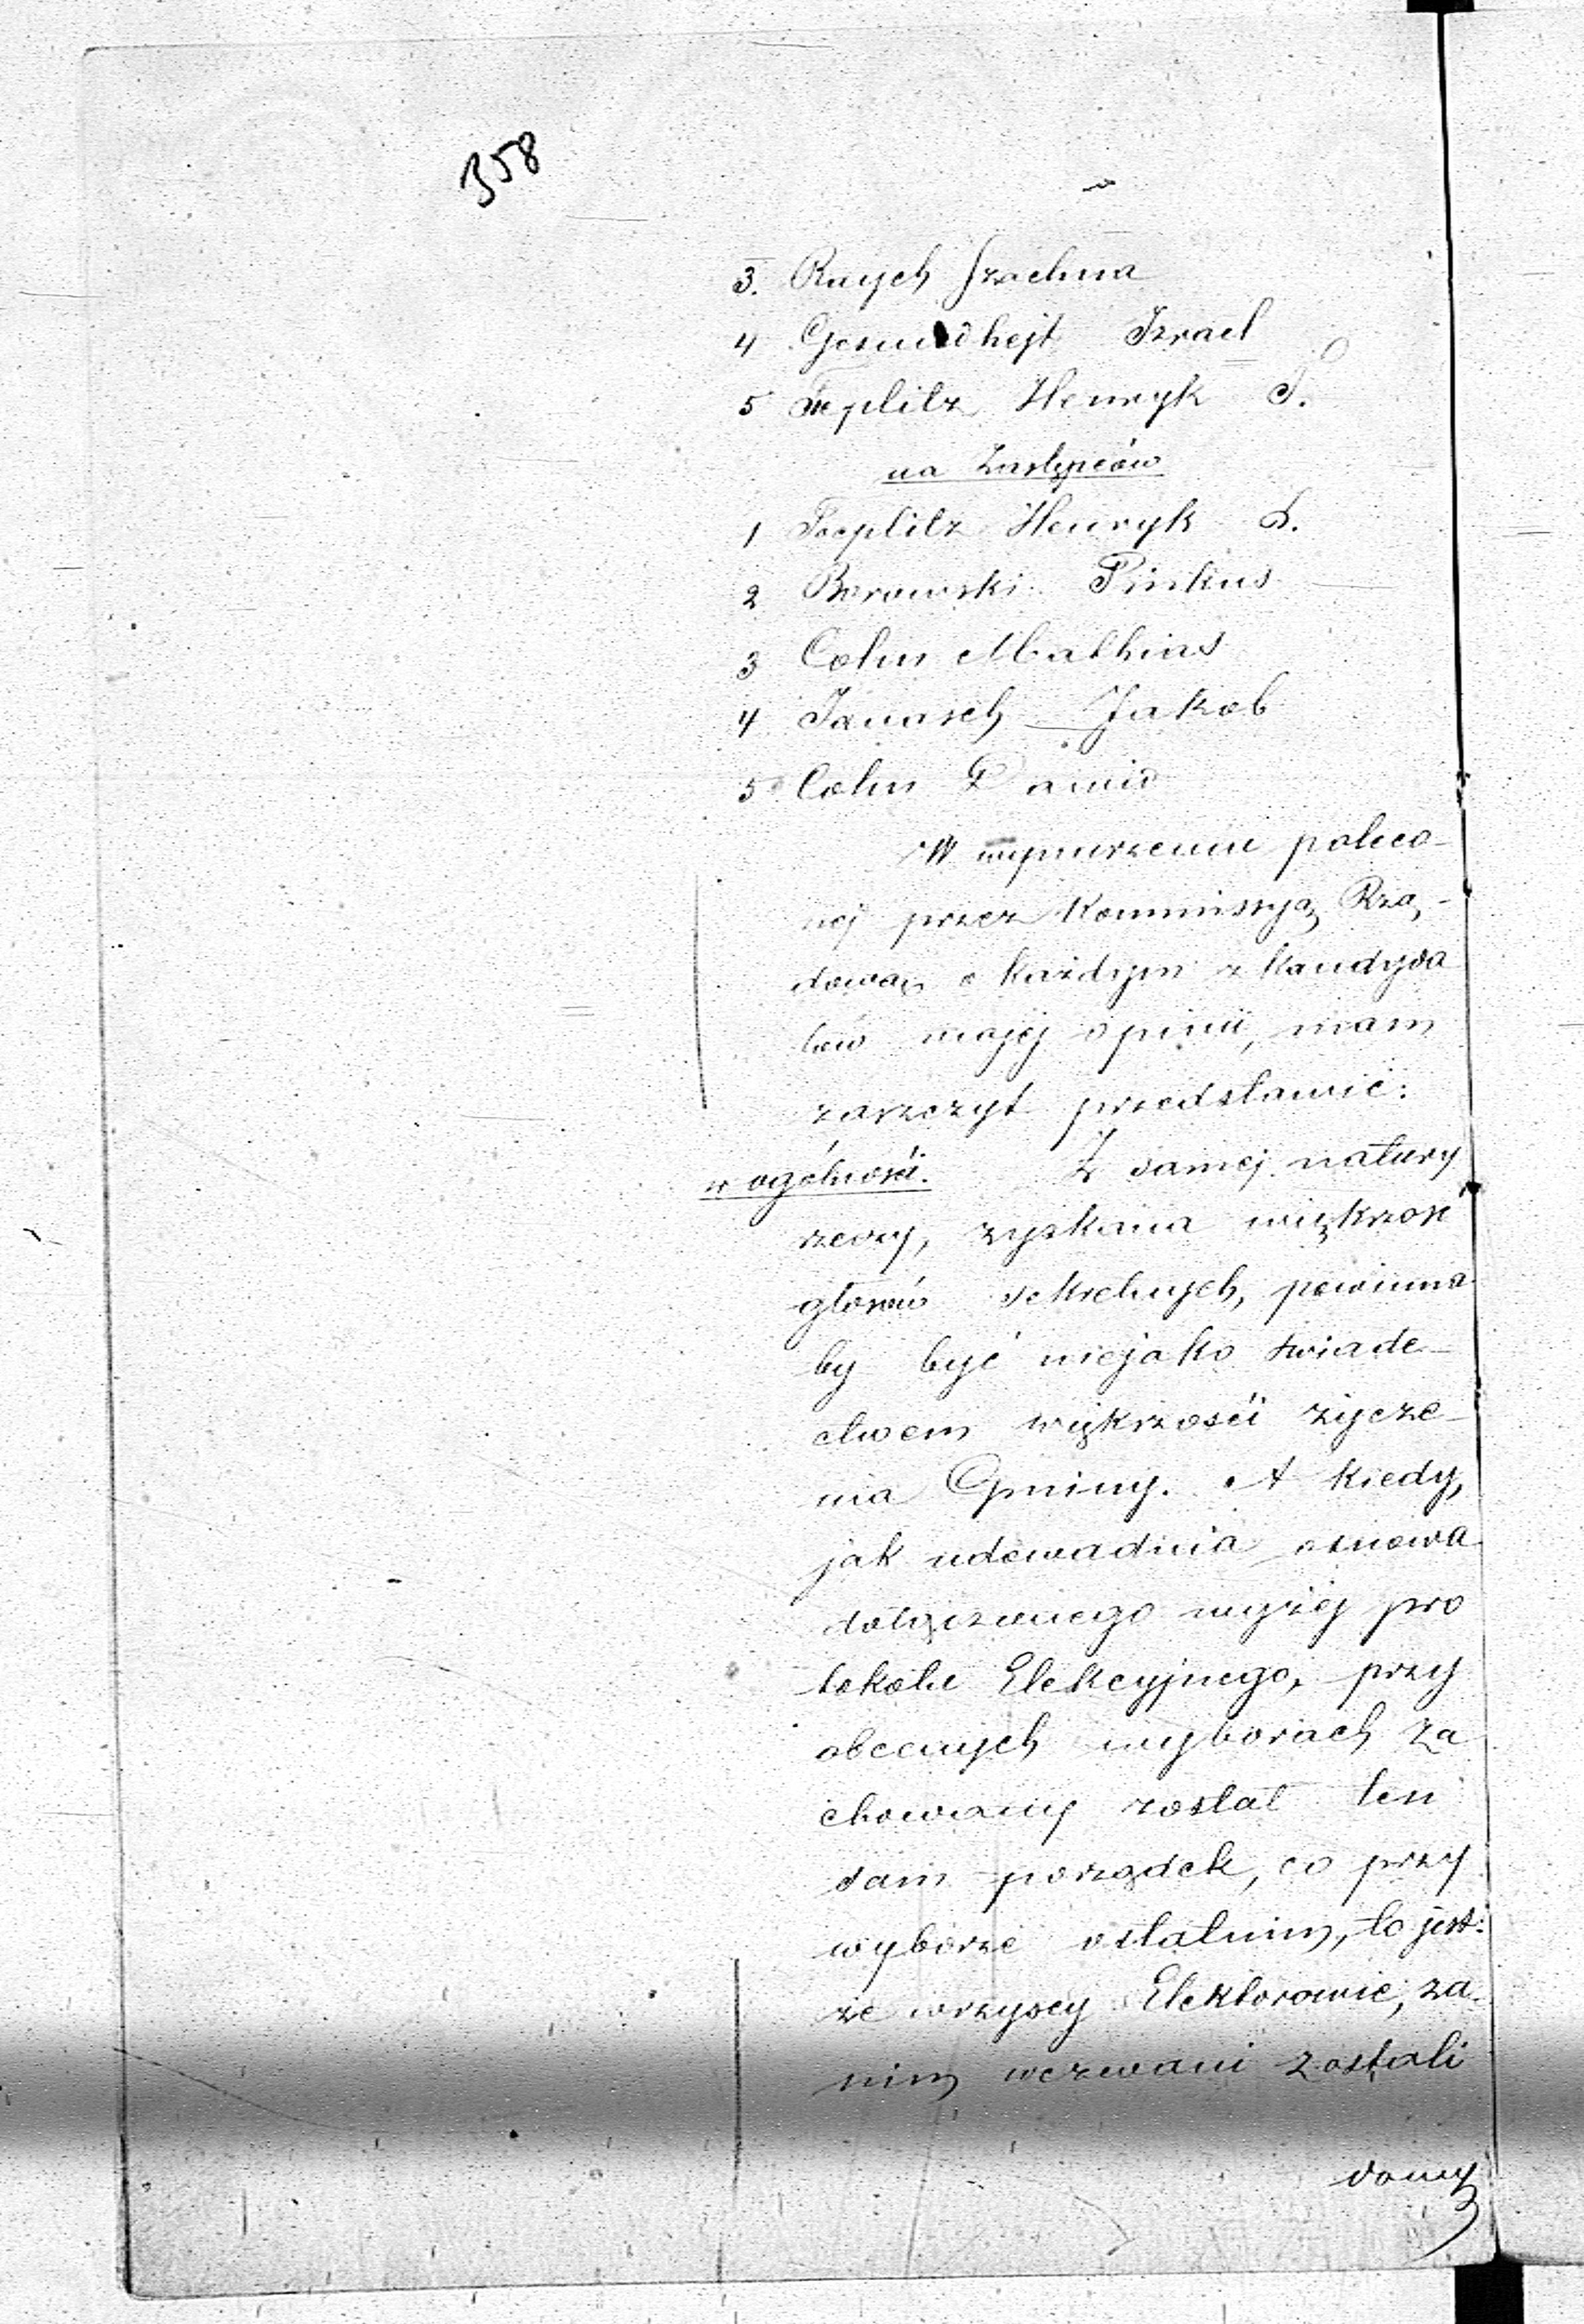 358
3. Raych Szachna
4 Gesundhejt Izrael
5 Teplitz Henryk I.
na Zastępców
1 Toeplitz Henryk L.
2 Borowski Pinkus
3 Cohn Mathias
4 Janasch Jakob
5 Cohn Dawid
W wynurzeniu poleco-
nej przez Kommissyą Rzą-
dową o każdym z Kandyda
tów mojej opinii, mam
zaszczyt przedstawić:
w ogólności. Z samej natury
rzeczy, zyskana większość
głosów sekretnych, powinna
by być niejako świade-
ctwem większości życze-
nia Gminy. A kiedy,
jak udowadnia osnowa
dołączonego wyżej pro
tokołu Elekcyjnego, przy
obecnych wyborach za
chowany został ten
sam porządek, co przy
wyborze ostatnim, to jest:
że wszyscy Elektorowie, za-
nim wezwani zostali